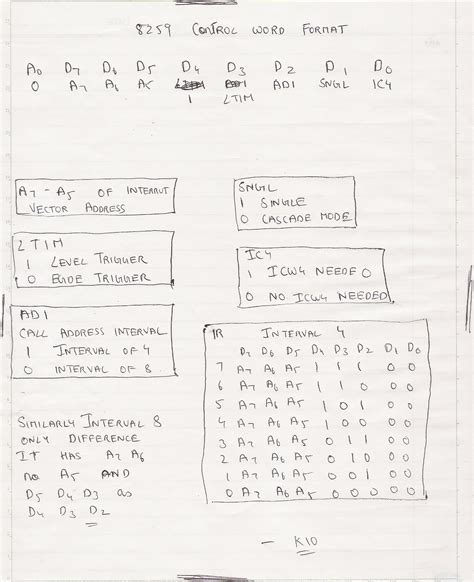 8259 CONTROL WORD FORMAT
A0 D7 D6 D5 D4 D3 D2 D1 D0
0 A7 A6 A5 LTIM AD1 SNGL IC4
1 LTIM
A7 - A5 OF INTERRUT
VECTOR ADDRESS
SNGL
1 SINGLE
0 CASCADE MODE
LTIM
1 LEVEL TRIGGER
0 EGDE TRIGGER
IC4
1 ICW4 NEEDED
0 NO ICW4 NEEDED
ADI
CALL ADDRESS INTERVAL
1 INTERVAL OF 4
0 INTERVAL OF 8
IR INTERVAL 4
D7 D6 D5 D4 D3 D2 D1 D0
7 A7 A6 A5 1 1 1 0 0
6 A7 A6 A5 1 1 0 0 0
5 A7 A6 A5 1 0 1 0 0
4 A7 A6 A5 1 0 0 0 0
3 A7 A6 A5 0 1 1 0 0
2 A7 A6 A5 0 1 0 0 0
1 A7 A6 A5 0 0 1 0 0
0 A7 A6 A5 0 0 0 0 0
SIMILARLY INTERVAL 8
ONLY DIFFERENCE
IT HAS A7 A6
no A5 AND
D5 D4 D3 as
D4 D3 D2
- K10